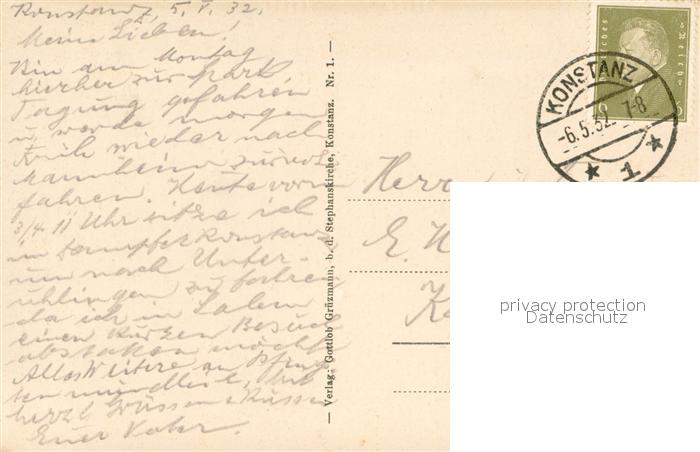 Konstanz, 5. V. 32.
Meine Lieben!
Bin am Montag
hierher zur
Tagung gefahren
u. werde morgen
früh wieder nach
Mannheim zurück
fahren. Heute vorm
3/4 11 Uhr sitze ich
im Dampfer Konstanz
um nach Unter-
uhldingen zu fahren
da ich in Salem
einen kurzen Besuch
abstatten möchte
Alles Weitere an Pfing
sten mündlich,
herzl Grüssen & Küssen
Euer Vater.
— Verlag: Gottlob Grüzmann, b. d. Stephanskirche, Konstanz. Nr. 1. —
Deutsches Reich
6 6
KONSTANZ
-6.5.32. 7-8
★ 1 ★
Herr
E.
privacy protection
Datenschutz